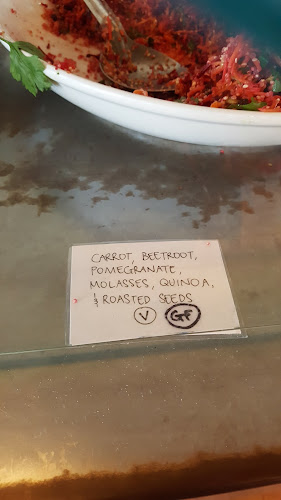 CARROT, BEETROOT,
POMEGRANATE,
MOLASSES, QUINOA,
& ROASTED SEEDS
V GF